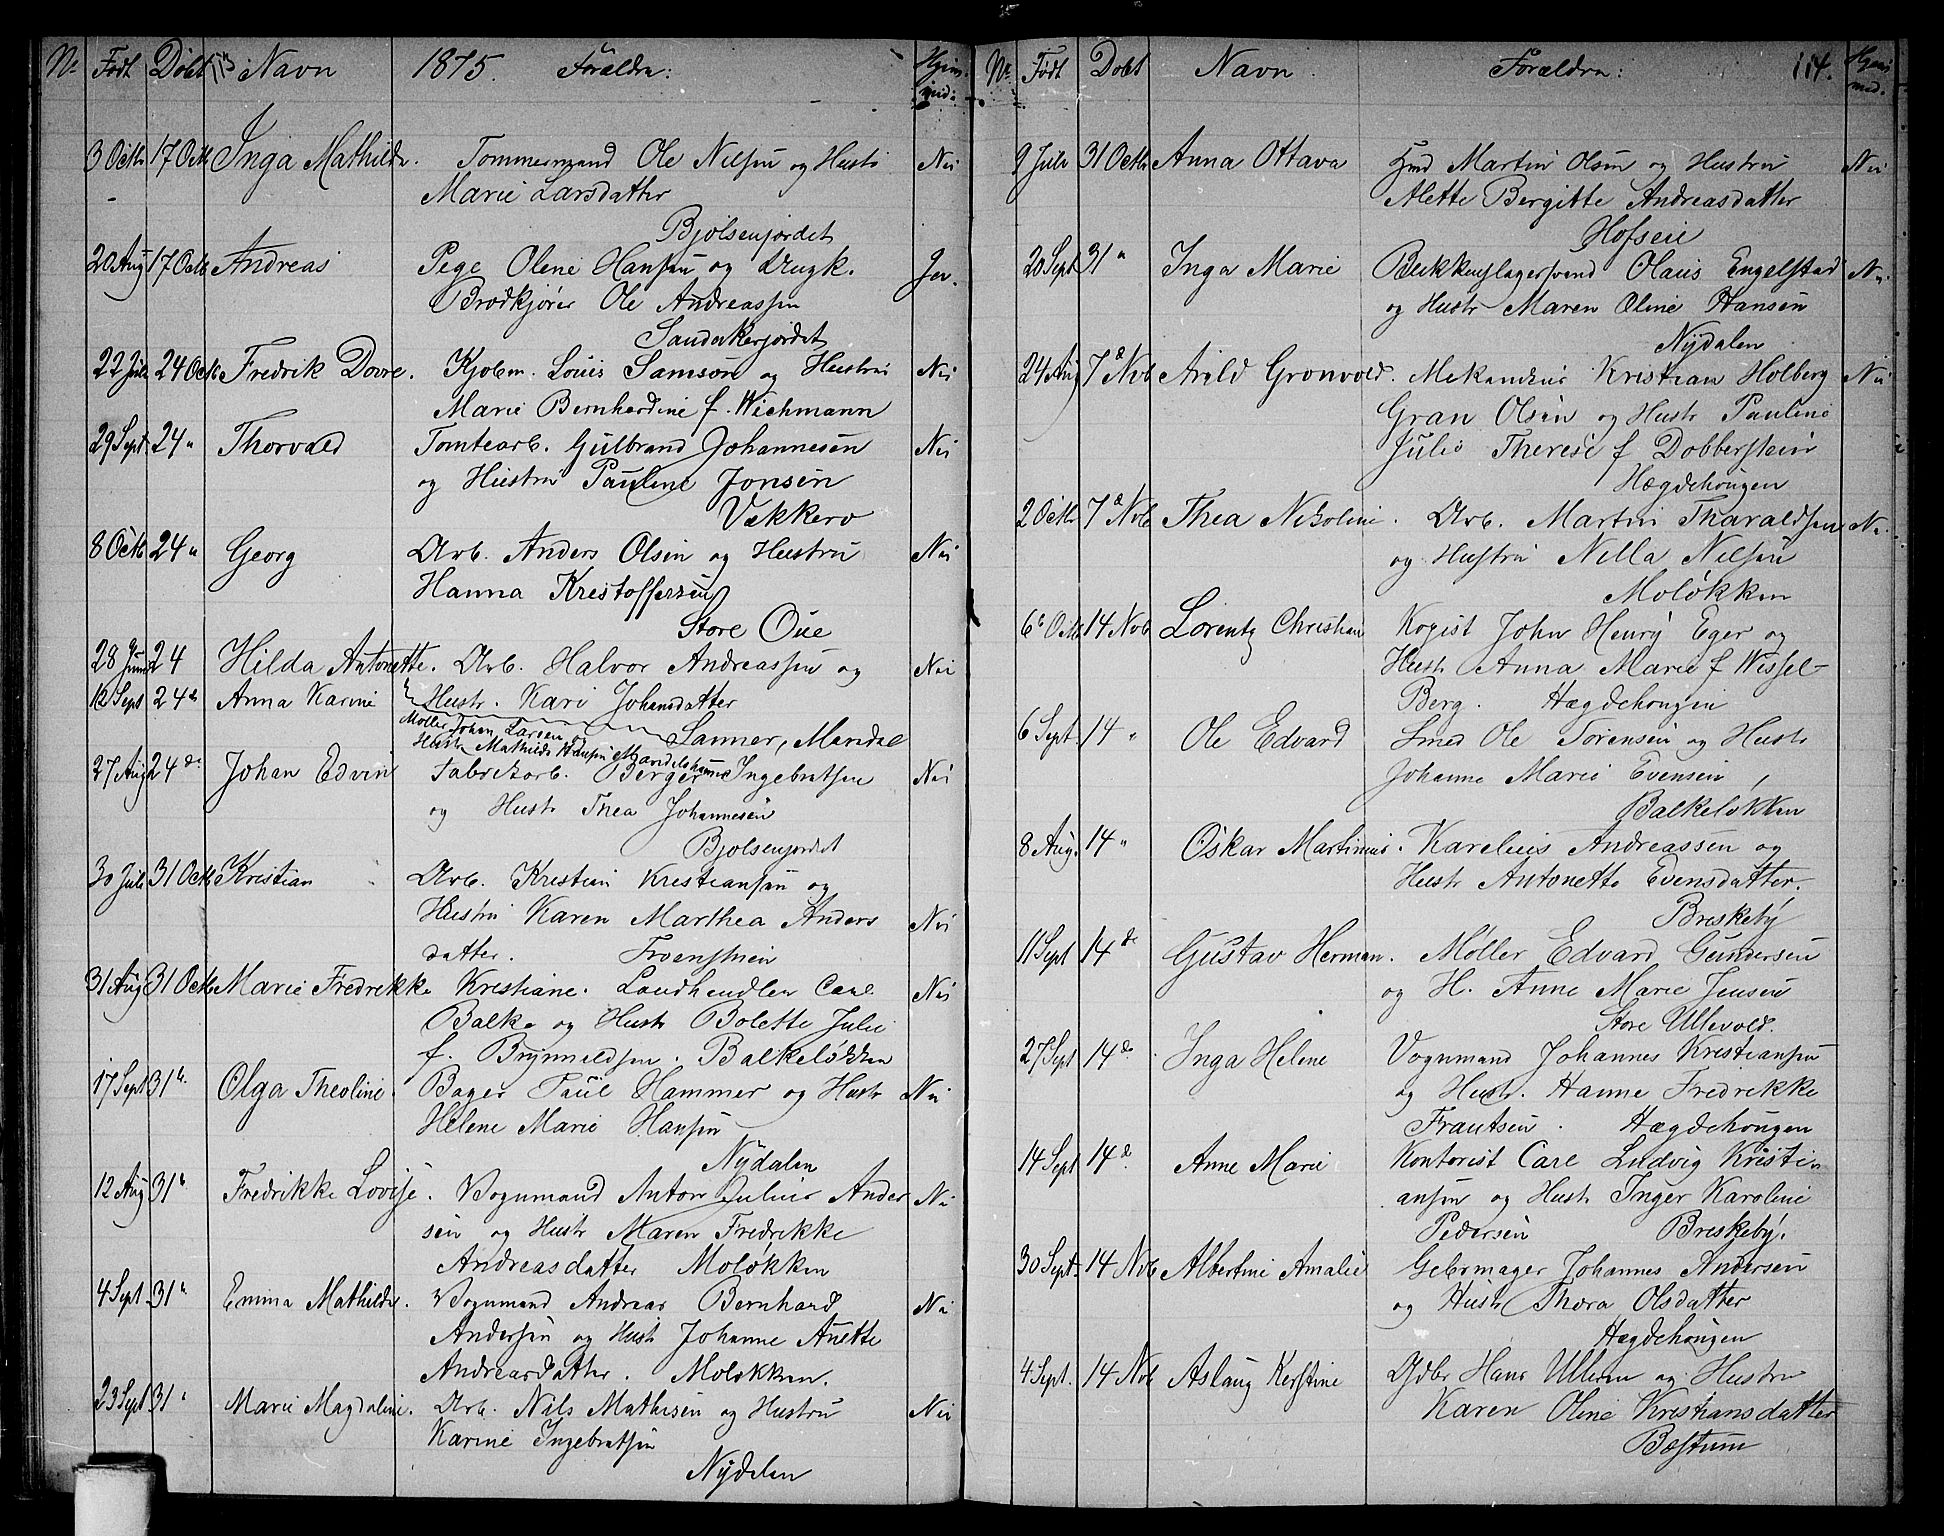 N. Født Døbt 113 Navn 1875. Forældre: Hjem. med:
3 Octb 17 Octb Inga Mathilde. Tømmermand Ole Nilsen og Hustr Nei
Marie Larsdatter
Bjølsenjordet
20 Aug 17 Octb Andreas Pige Oline Hansen og Ungk. Ja.
Brødkjører Ole Andreassen
Sandakerjordet
22 Juli 24 Octb Fredrik Dovre. Kjøbm. Louis Samson og Hustru Nei
Marie Bernhardine f. Wichmann
29 Sept 24 " Thorvald Tomtearb. Gulbrand Johannesen Nei
og Hustru Pauline Jonsen
Vækkerø
8 Octb. 24 " Georg Arb. Anders Olsen og Hustru Nei
Hanna Kristoffersen
Store Oue
28 Juni 24 Hilda Antonette. Arb. Halvor Andreassen og Nei
12 Sept 24 d Anna Karine Hustr. Kari Johansdatter
Møller Johan Larsen og Sanner, Maridal
Hustr Mathilde Hansen Mandelshaven
27 Aug 24 d. Johan Edvin Fabrikarb. Berger Ingebretsen Nei
og Hustr Thea Johannesen
Bjølsenjordet
30 Juli 31 Octb Kristian Arb. Kristian Kristiansen og
Hustru Karen Marthea Anders Nei
datter.
31 Aug 31 Octb Marie Fredrikke Kristiane. Landhandler Carl Nei
Balke og Hustr Bolette Julie
f. Brynneldsen. Balkeløkken
17 Sept 31 ". Olga Theoline. Bager Paul Hammer og Hustr Nei
Helene Marie Hansen
Nydalen
12 Aug 31 " Fredrikke Lovise. Vognmand Anton Julius Ander Nei
sen og Hustr Maren Fredrikke
Andreasdatter Moløkken
4 Sept. 31 " Emma Mathilde. Vognmand Andreas Bernhard Nei
Andersen og Hust Johanne Anette
Andreasdatter. Moløkken.
23 Sept 31 " Marie Magdaline. Arb. Nils Mathisen og Hustru Nei
Karine Ingebretsen
Nydalen
N. Født Døbt Navn. Forældre: 114. Hjem med.
9 Juli 31 Octb Anna Ottava Hmd Martin Olsen og Hustru Nei
Alette Bergitte Andreasdatter
Hofseie
20 Sept 31 " Inga Marie Bækkenslagersvend Olaus Engelstad Nei
og Hustr Maren Oline Hansen
Nydalen
24 Aug 7 d Nvb Arild Grønvold. Mekanikus Kristian Holberg Nei
Gran Olsen og Hustr Pauline
Julie Therese f Dobberstein
Hægdehougen
2 Octb 7 d Nvb Thea Nikoline. Arb. Martin Tharaldsen Nei
og Hustru Nilla Nilsen
Moløkken
6 Octb 14 Nvb Lorentz Christian Kopist John Henry Eger og
Hustr Anna Marie f Wissel-
Berg. Hægdehougen
6 Sept. 14 " Ole Edvard Smed Ole Sørensen og Hustr
Johanne Marie Evensen,
Balkeløkken
8 Aug. 14 " Oskar Martinius. Karelius Andreassen og
Hustr Antonette Evensdatter.
Breskeby
11 Sept 14 d. Gustav Herman. Møller Edvard Gundersen
og H. Anne Marie Jensen
Store Ullevold.
27 Sept 14 d. Inga Helene Vognmand Johannes Kristiansen
og Hustr. Hanne Fredrikke
Frantsen. Hægdehougen
14 Sept 14 d. Anne Marie Kontorist Carl Ludvig Kristi
ansen og Hustr Inger Karoline
Pedersen Breskeby.
30 Sept. 14 Nvb Albertine Amalie Gelbermager Johannes Andersen
og Hustr Thora Olsdatter
Hægdehougen
4 Sept. 14 Nvb Aslaug Kerstine Gdbr Hans Ullern og Hustru
Karen Oline Kristiansdatter
Bæstum